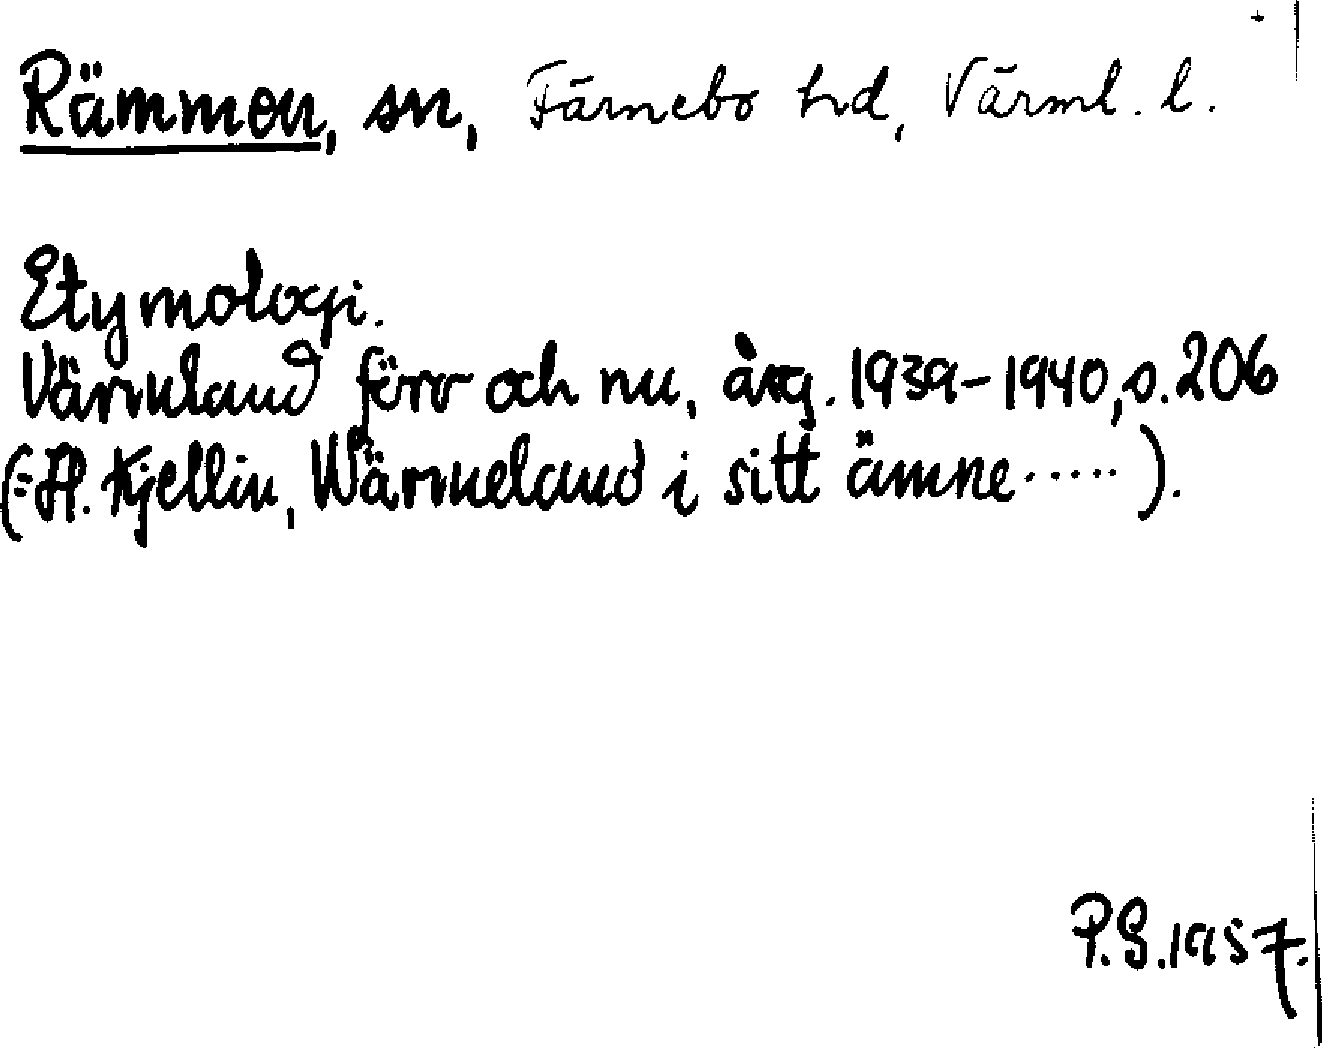 Rämmen, sn, Färnebo hd, Värml. l.
Etymologi.
Värmland förr och nu, årg. 1939-1940, s. 206
(=H. Kjellin, Wärmeland i sitt ämne.....).
P.S. 1957.